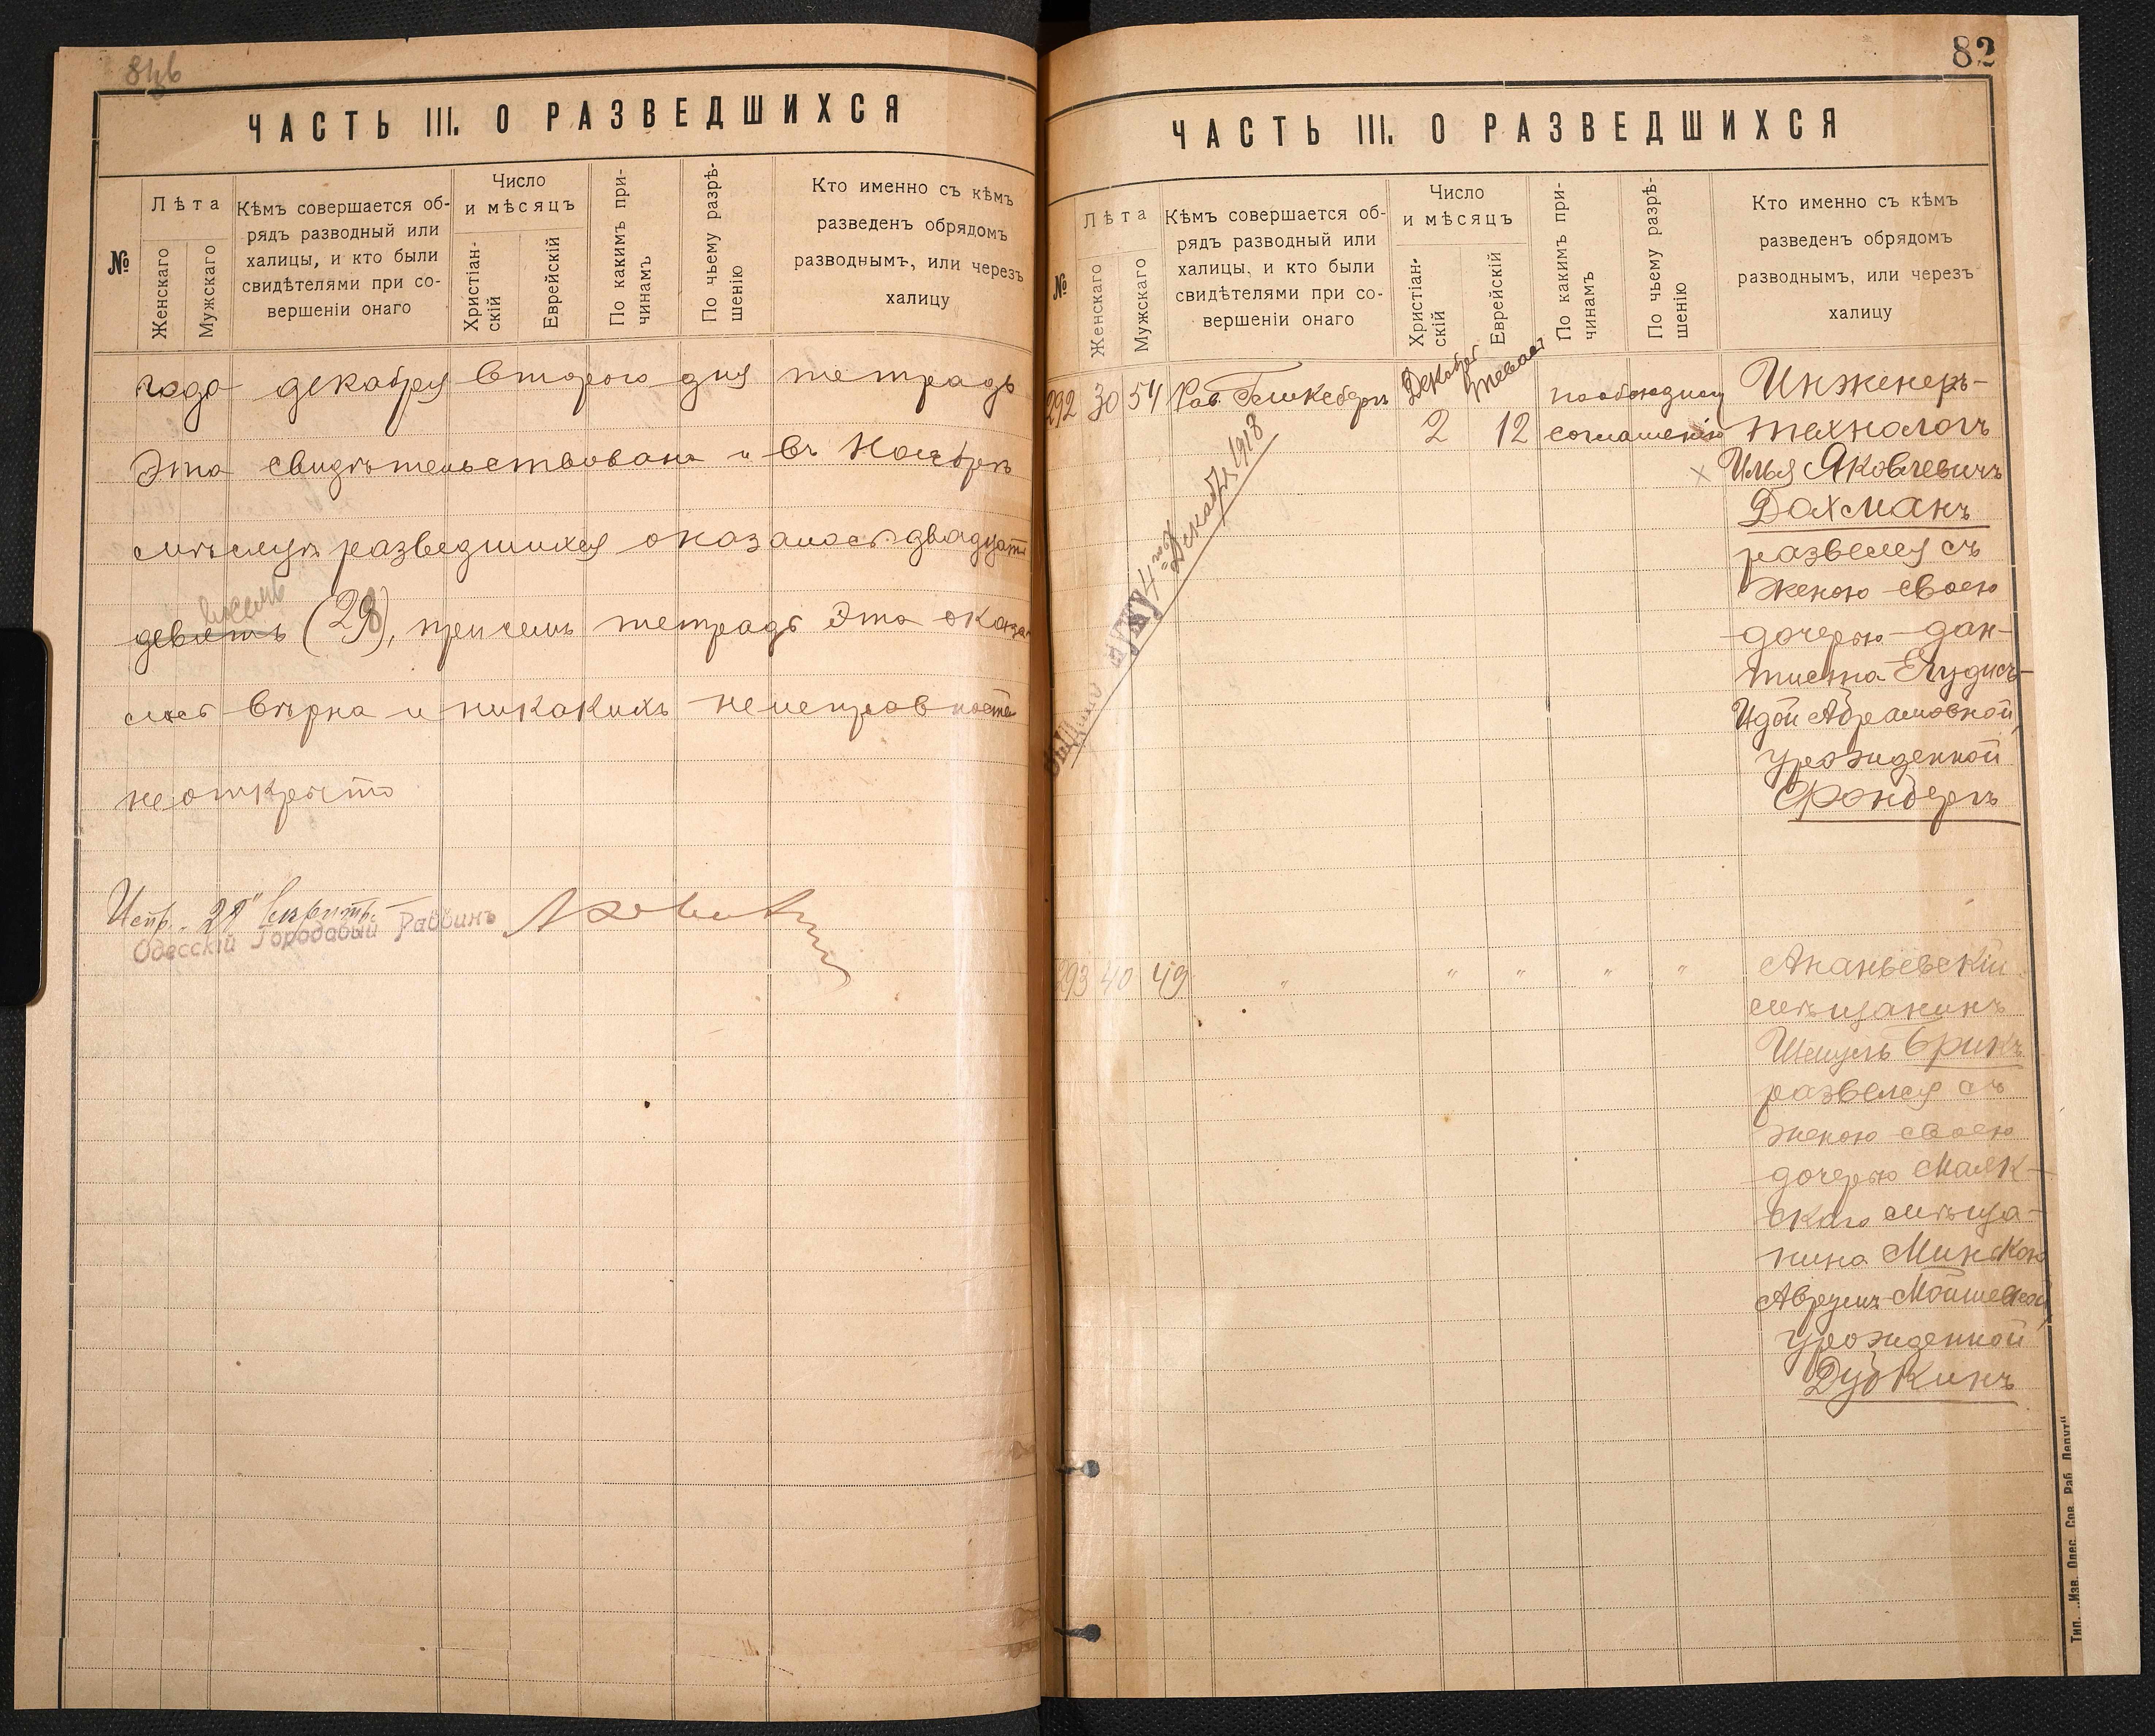 81об
ЧАСТЬ III. О РАЗВЕДШИХСЯ
№
Лѣта
Женскаго
Мужскаго
Кѣмъ совершается об-
рядъ разводный или
халицы, и кто были
свидѣтелями при со-
вершеніи онаго
Число
и мѣсяцъ
Христіан-
скій
Еврейскій
По какимъ при-
чинамъ
По чьему разрѣ-
шенію
Кто именно съ кѣмъ
разведенъ обрядомъ
разводнымъ, или черезъ
халицу
года декабря второго дня тетрадь
эта свидѣтельствована и въ Ноябрѣ
мѣсяцѣ разведшихся оказалось двадцать
восемь
девять (28), причемъ тетрадь эта оказа-
лась вѣрна и никакихъ неисправностей
не открыто
Испр. „28"
Одесскій Городовый Раввинъ
82
ЧАСТЬ III. О РАЗВЕДШИХСЯ
№
Лѣта
Женскаго
Мужскаго
Кѣмъ совершается об-
рядъ разводный или
халицы, и кто были
свидѣтелями при со-
вершеніи онаго
Число
и мѣсяцъ
Христіан-
скій
Еврейскій
По какимъ при-
чинамъ
По чьему разрѣ-
шенію
Кто именно съ кѣмъ
разведенъ обрядомъ
разводнымъ, или черезъ
халицу
292 30 54 Рав. Гинкебергъ Декабрь 2 Тевеса 12 по обоюдному соглашенію
Инженеръ-
технологъ
Илья Яковлевичъ
Дахманъ
развелся съ
женою своею
дочерью дан-
тиста Елудисъ-
Идой Абрамовной,
урожденной
Фонбергъ
Декабря 1918
293 40 49 " " " " "
Ананьевскій
мѣщанинъ
Шмуль Брикъ
развелся съ
женою своею
дочерью Маяк-
скаго мѣща-
нина Минскою
Аврумъ-Мойшевной,
урожденной
Дубкинъ
Тип. „Изв. Одес. Сов. Раб. Депут"